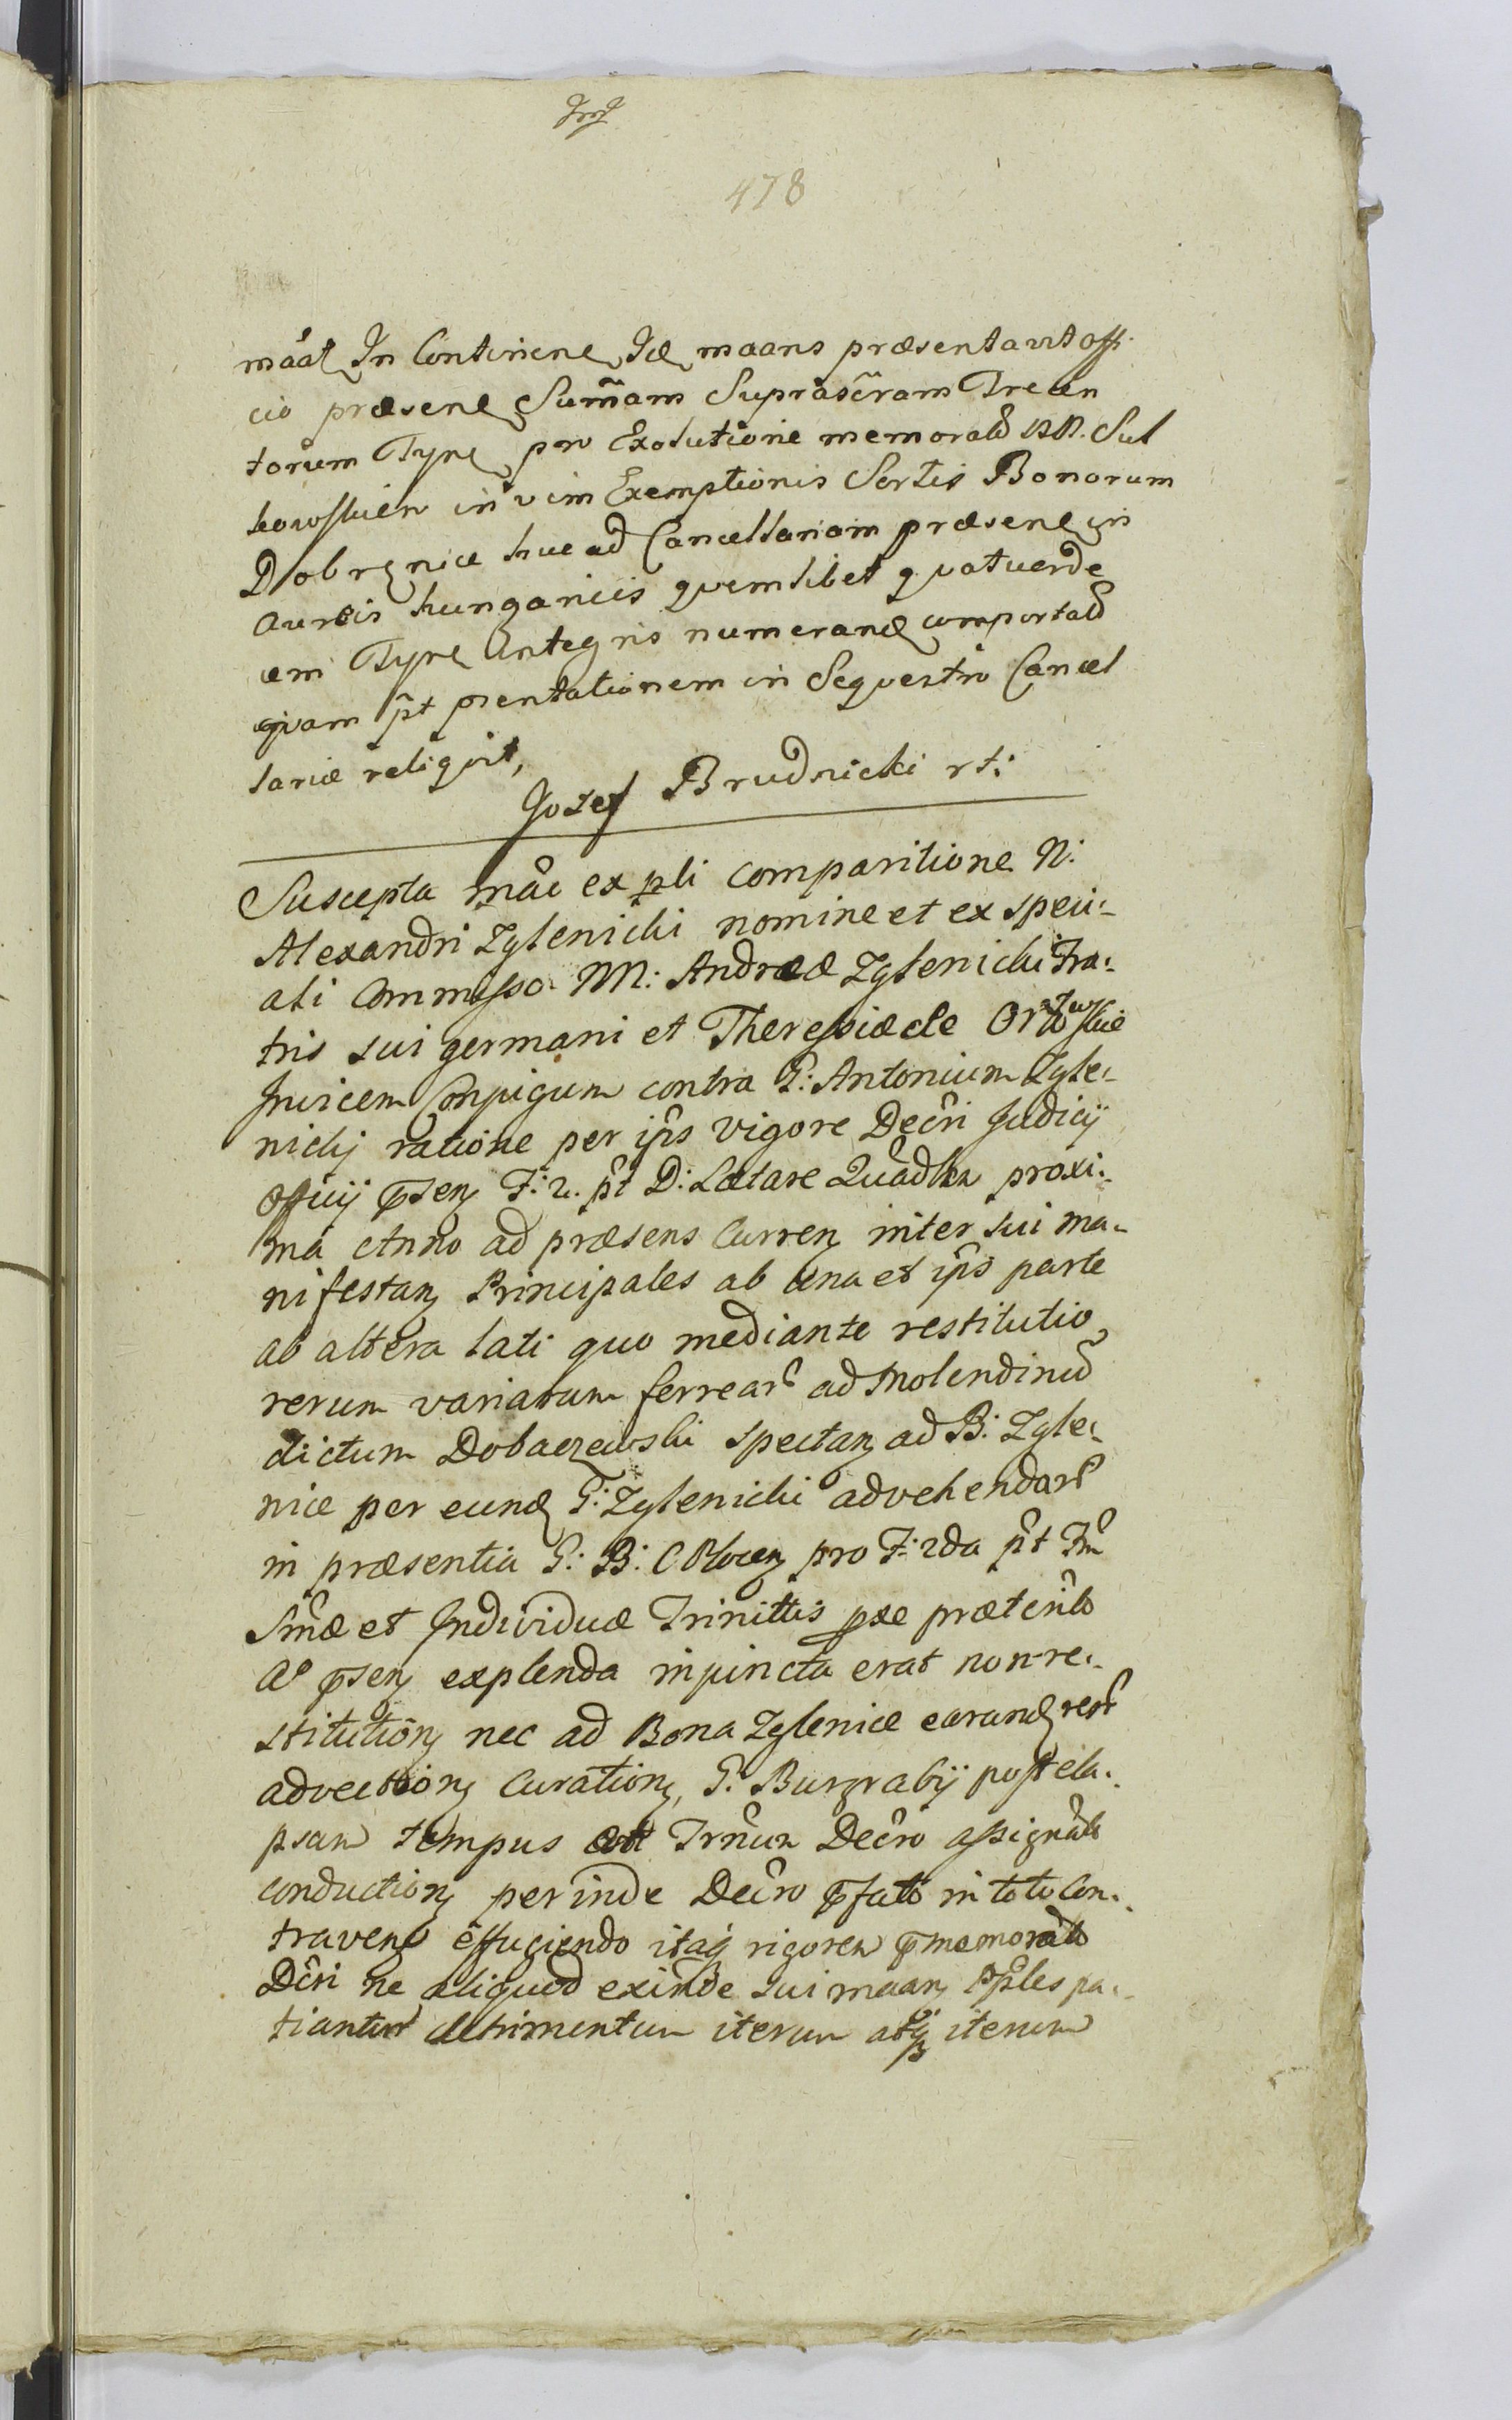 478
mãat In Continene Ide maans præsentavit offi
cio præsene Sum̃am Suprascr̃am Trecen
torum Tynf pro Exolutione memorad NN. Sul
kowskien in vim Exemptionis Sortis Bonorum
Dobrznice huc ad Cancellariam præsene in
aureis hungaricis quemlibet quatuorde
cem Tynf integris numerand comportad
quam pt p̃sentationem in Sequestro Cancel
lariæ reliqvit,
Jozef Brudnicki rt:
Suscepta mãe ex pli comparitione N:
Alexandri Zglenicki nomine et ex speci-
ali Commisso M: Andreæ Zglenicki Fra-
tris sui germani et Theressiæ de Orłowskie
Invicem Conjugum contra G: Antonium Zgle-
nickj ratione per ip̃s vigore Decr̃i Judicij
Officij p̃sen F: 2. p̃t D: Lætare Quadra proxi-
ma Anno ad præsens Curren inter sui ma-
nifestan Principales ab una et ip̃s parte
ab altera lati quo mediante restitutio
rerum variarum ferrear ad Molendinu
dictum Dobaczewski spectan ad B: Zgle-
nice per eund G: Zglenicki advehendar
in præsentia G: B: C Plocen pro F: 2da p̃t Fm
Smæ et Individuæ Trinittis pxe præterito
Ao p̃sen explenda injuncta erat non re-
stitution nec ad Bona Zglenice earund rer
advection Curation, G: Burgrabij post ela-
psum tempus Tr̃num Decr̃o assignato
conduction perinde Decr̃o p̃fato in toto Con-
traven effugiendo itaq rigorem p̃memorato
Decr̃i ne aliquod exinde sui maan P̃ples pa-
tiantur detrimentum iterum atq iterum